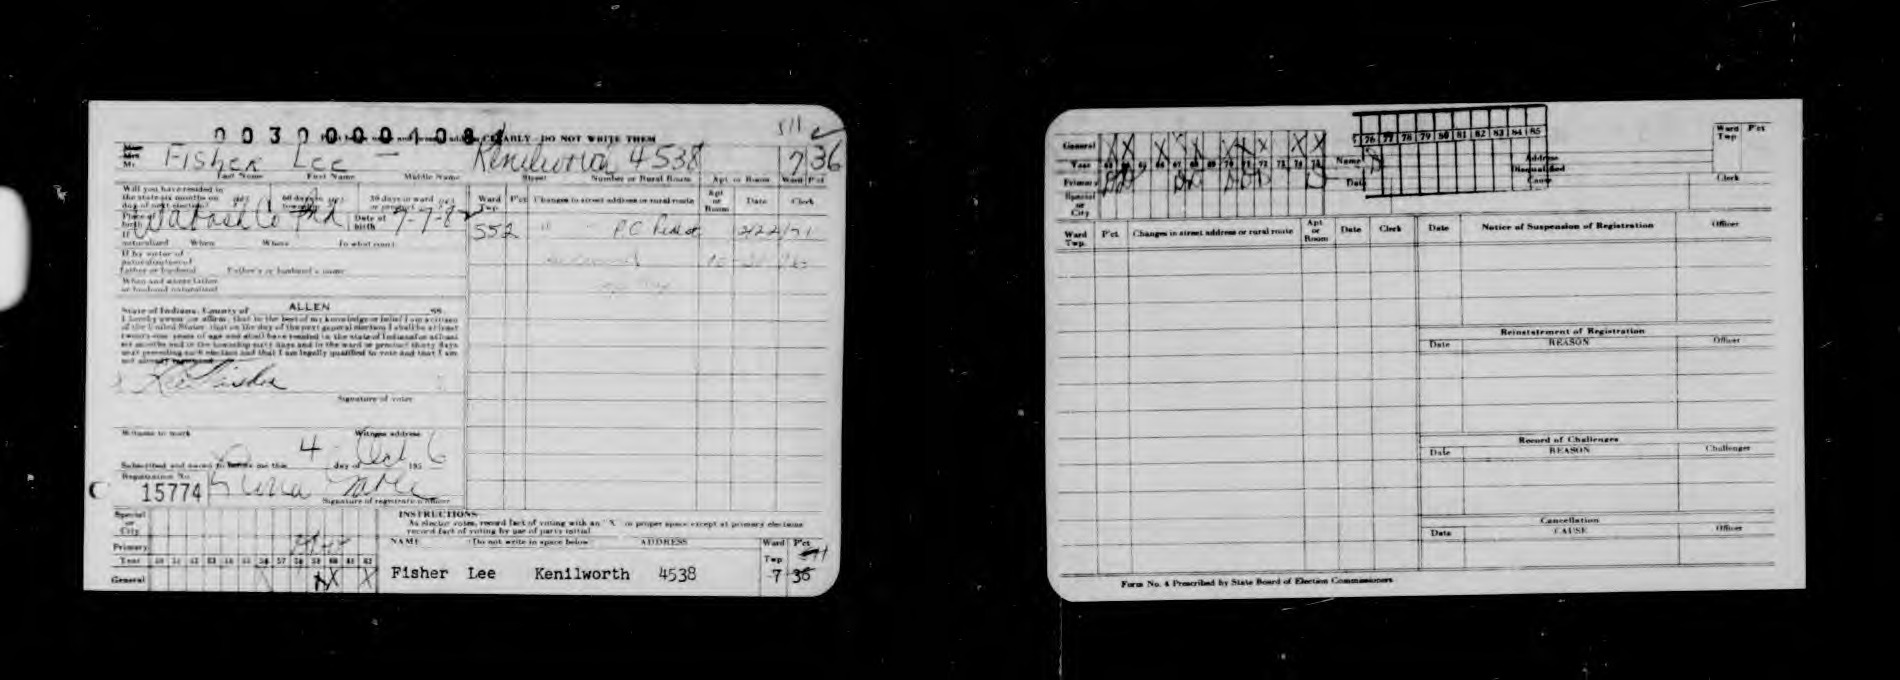 0030000108
CLEARLY - DO NOT WRITE THEM
511
Mr. Fisher Lee - Kenilworth 4538 7 36
Last Name First Name Middle Name Street Number or Rural Route Apt. or Room Ward P'ct
Will you have resided in
the state six months on
day of next election? yes 60 days in township yes 30 days in ward or precinct yes
Place of birth Wabash Co Ind Date of birth
If naturalized When Where In what court
If by virtue of
naturalization of
father or husband Father's or husband's name
When and where father
or husband naturalized
Ward Twp. P'ct Changes in street address or rural route Apt or Room Date Clerk
552 " P.C. 2/22/71
State of Indiana, County of ALLEN SS
I hereby swear or affirm, that to the best of my knowledge or belief I am a citizen
of the United States, that on the day of the next general election I shall be at least
twenty-one years of age and shall have resided in the state of Indiana for at least
six months and in the township sixty days and in the ward or precinct thirty days
next preceding such election and that I am legally qualified to vote and that I am
not already registered
x Lee Fisher
Signature of voter
Witness to mark Witness address
Subscribed and sworn to before me this 4 day of Oct 195 6
Registration No.
C 15774
Signature of registration officer
INSTRUCTIONS
As elector votes, record fact of voting with an "X" in proper space except at primary elections
record fact of voting by use of party initial
Special or City
Primary
Year 50 51 52 53 54 55 56 57 58 59 60 61 62
General X X
NAME (Do not write in space below) ADDRESS Ward Twp P'ct
Fisher Lee Kenilworth 4538 7 36
76 77 78 79 80 81 82 83 84 85
General
Year 63 64 65 66 67 68 69 70 71 72 73 74 75
Primary
Special or City
Name
Date
Address
Disqualified
Cause
Ward Twp P'ct
Clerk
Ward Twp. P'ct Changes in street address or rural route Apt or Room Date Clerk Date Notice of Suspension of Registration Officer
Reinstatement of Registration
Date REASON Officer
Record of Challenges
Date REASON Challenger
Cancellation
Date CAUSE Officer
Form No. 4 Prescribed by State Board of Election Commissioners